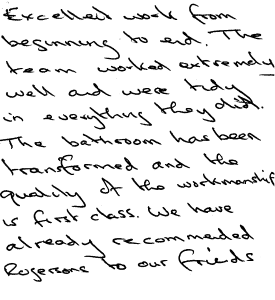 Excellent work from
beginning to end. The
team worked extremely
well and were tidy
in everything they did.
The bathroom has been
transformed and the
quality of the workmanship
is first class. We have
already recommended
Rogersons to our friends